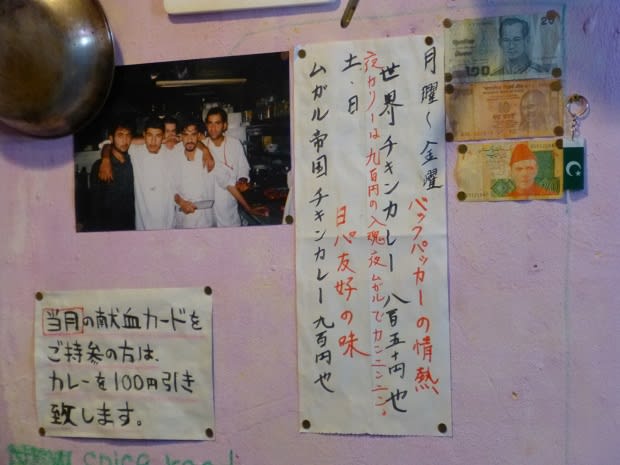 月曜〜金曜 バックパッカーの情熱
世界チキンカレー 八百五十円也
夜カリーは九百円の入魂夜ムガルでカンニンニン。
土・日 日パ友好の味
ムガル帝国チキンカレー九百円也
当月の献血カードを
ご持参の方は、
カレーを100円引き
致します。
20